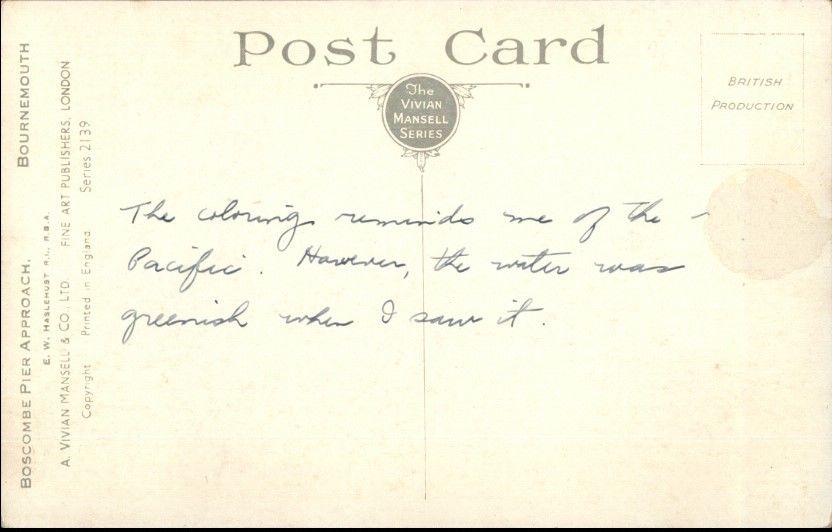 Post Card
The
VIVIAN
MANSELL
SERIES
BRITISH
PRODUCTION
The colorings reminds me of the -
Pacific. However, the water was
greenish when I saw it.
BOSCOMBE PIER APPROACH. BOURNEMOUTH
E. W. HASLEHUST R.I., R.B.A.
A. VIVIAN MANSELL & CO., LTD. FINE ART PUBLISHERS, LONDON
Copyright Printed in England Series 2139